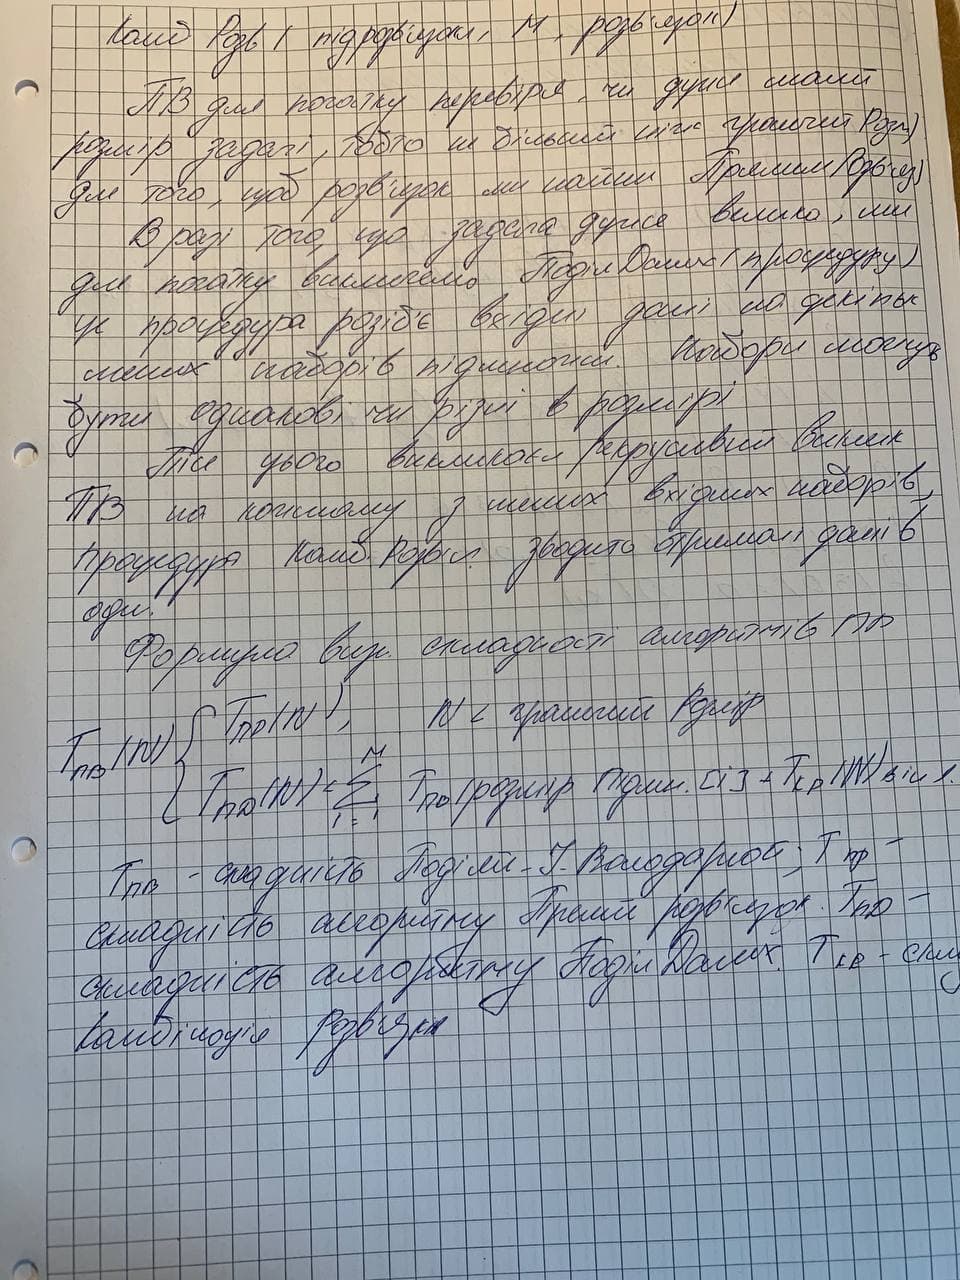 Комб Розв ( підрозв'язок, М, розв'язок)
ПВ для початку перевіря, чи дуже малий
розмір задачі, тобто не більший ніж граничий Розм)
для того, щоб розв'язок ми найти Прямим Розв'яз)
В разі того, що задача дуже велика, ми
для початку викличемо ПоділДаних (процедуру)
ця процедура розіб'є вхідні дані на декільк
менших наборів підмножин. Набори можуть
бути однакові чи різні в розмірі
Піс цього викликаєм рекрусивий виклик
ПВ на кожному з менших вхідних наборів,
процедура Комб. Розв'яз. зводить отримані дані в
один.
Формула виз. складності алгоритмів ПВ
Tпв(N) { Tпр(N), N < граничий Розмір
Tпд(N) + Σ i=1 M Tпв(розмір Підмн. [i] + Tкр(N) він.
Tпв - складність Поділяй-І-Володарюй; Tпр -
складність алгоритму Прямий розв'язок. Tпд -
складність алгоритму ПоділДаних. Tкв - скла
Комбінація Розв'язки